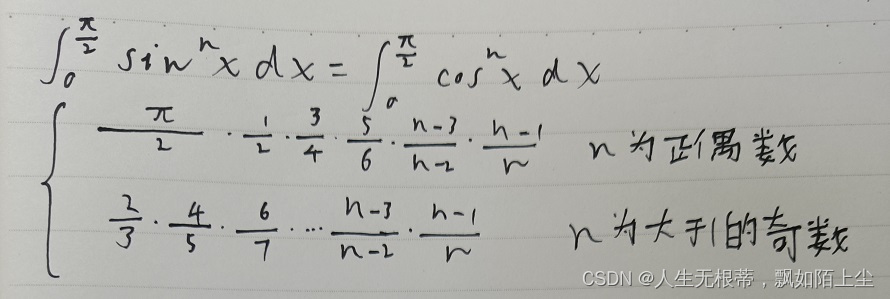 ∫₀^(π/2) sinⁿx dx = ∫₀^(π/2) cosⁿx dx
{ π/2 · 1/2 · 3/4 · 5/6 · (n-3)/(n-2) · (n-1)/n n为正偶数
2/3 · 4/5 · 6/7 · … (n-3)/(n-2) · (n-1)/n n为大于1的奇数
CSDN @人生无根蒂，飘如陌上尘